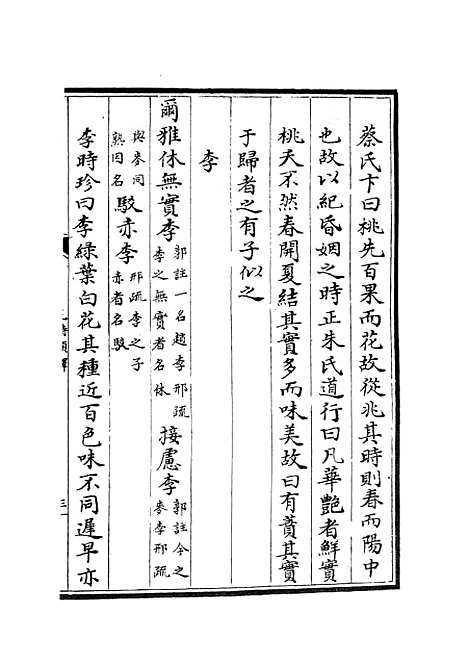 蔡氏卞曰桃先百果而花故從兆其時則春而陽中
也故以紀昏姻之時正朱氏道行曰凡華艶者鮮實
桃夭不然春開夏結其實多而味美故曰有蕡其實
于歸者之有子似之
李
爾雅休無實李郭註一名趙李邢疏李之無實者名休接慮李郭註今之麥李邢疏
與麥同熟因名駁赤李邢疏李之子赤者名駁
李時珍曰李綠葉白花其種近百色味不同遲早亦